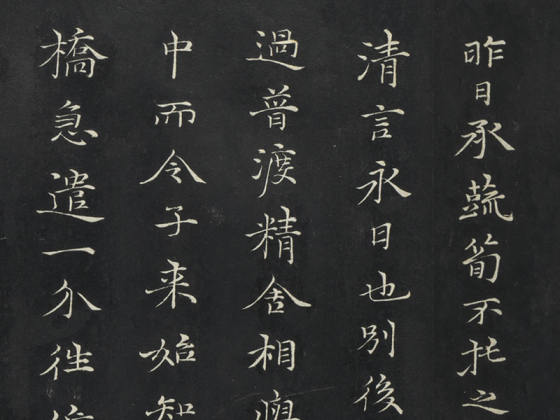 昨日承蔬筍不托之
清言永日也別後
過普渡精舍相
中而令子来始知
橋急遣一介徃